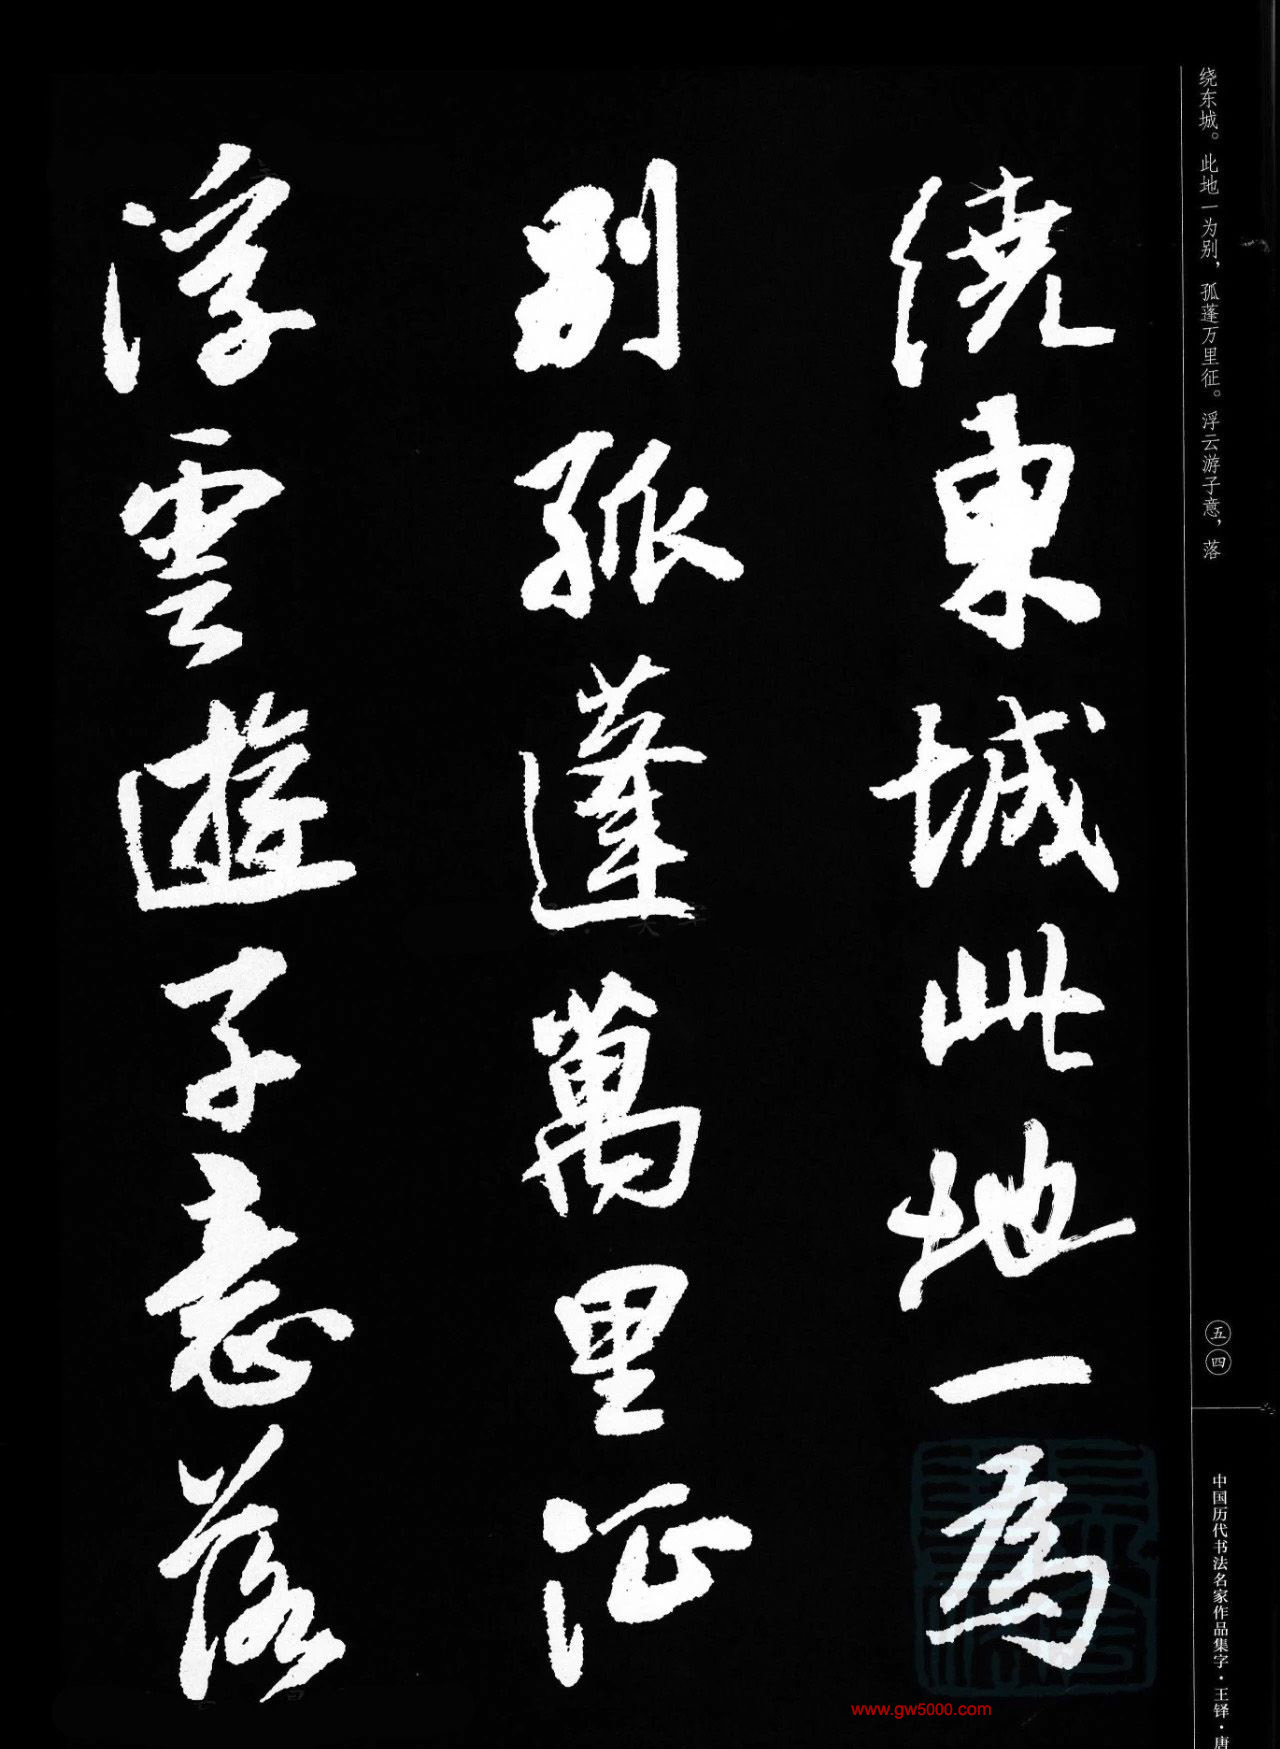 繞東城此地一為
別孤蓬萬里征
浮雲遊子意落
绕东城。此地一为别，孤蓬万里征。浮云游子意，落
五四
中国历代书法名家作品集字·王铎·唐
www.gw5000.com